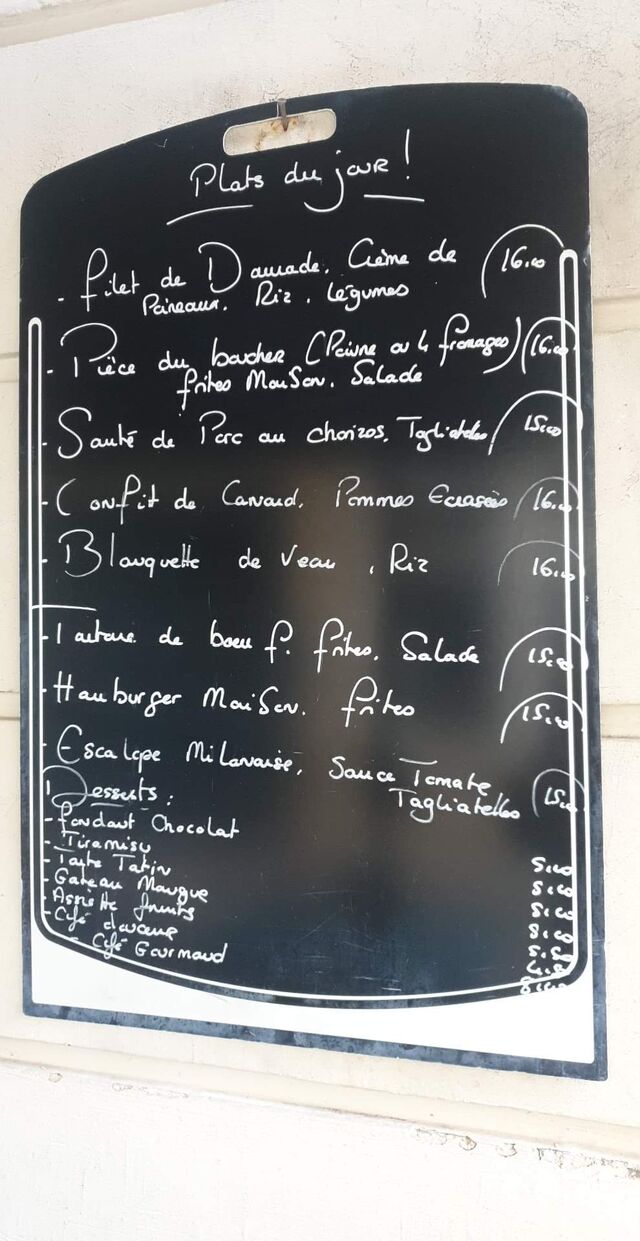 Plats du jour !
- Filet de Daurade. Crème de 16.00
Poireaux. Riz. légumes
- Pièce du boucher (Poivre ou 4 fromages) 16.00
frites MaiSon. Salade
- Sauté de Porc au chorizos. Tagliatelles 15.00
- Confit de Canard. Pommes Ecrasées 16.00
- Blanquette de veau , Riz 16.00
- Tartare de boeuf. frites. Salade 15.00
- Hamburger MaiSon. frites 15.00
- Escalope Milanaise. Sauce Tomate
Tagliatelles 15.00
Desserts :
- fondant Chocolat 5.00
- Tiramisu 5.00
- Tarte Tatin 5.00
- Gateau Mangue
- Assiette fruits 5.50
- Café
- Café Gourmand